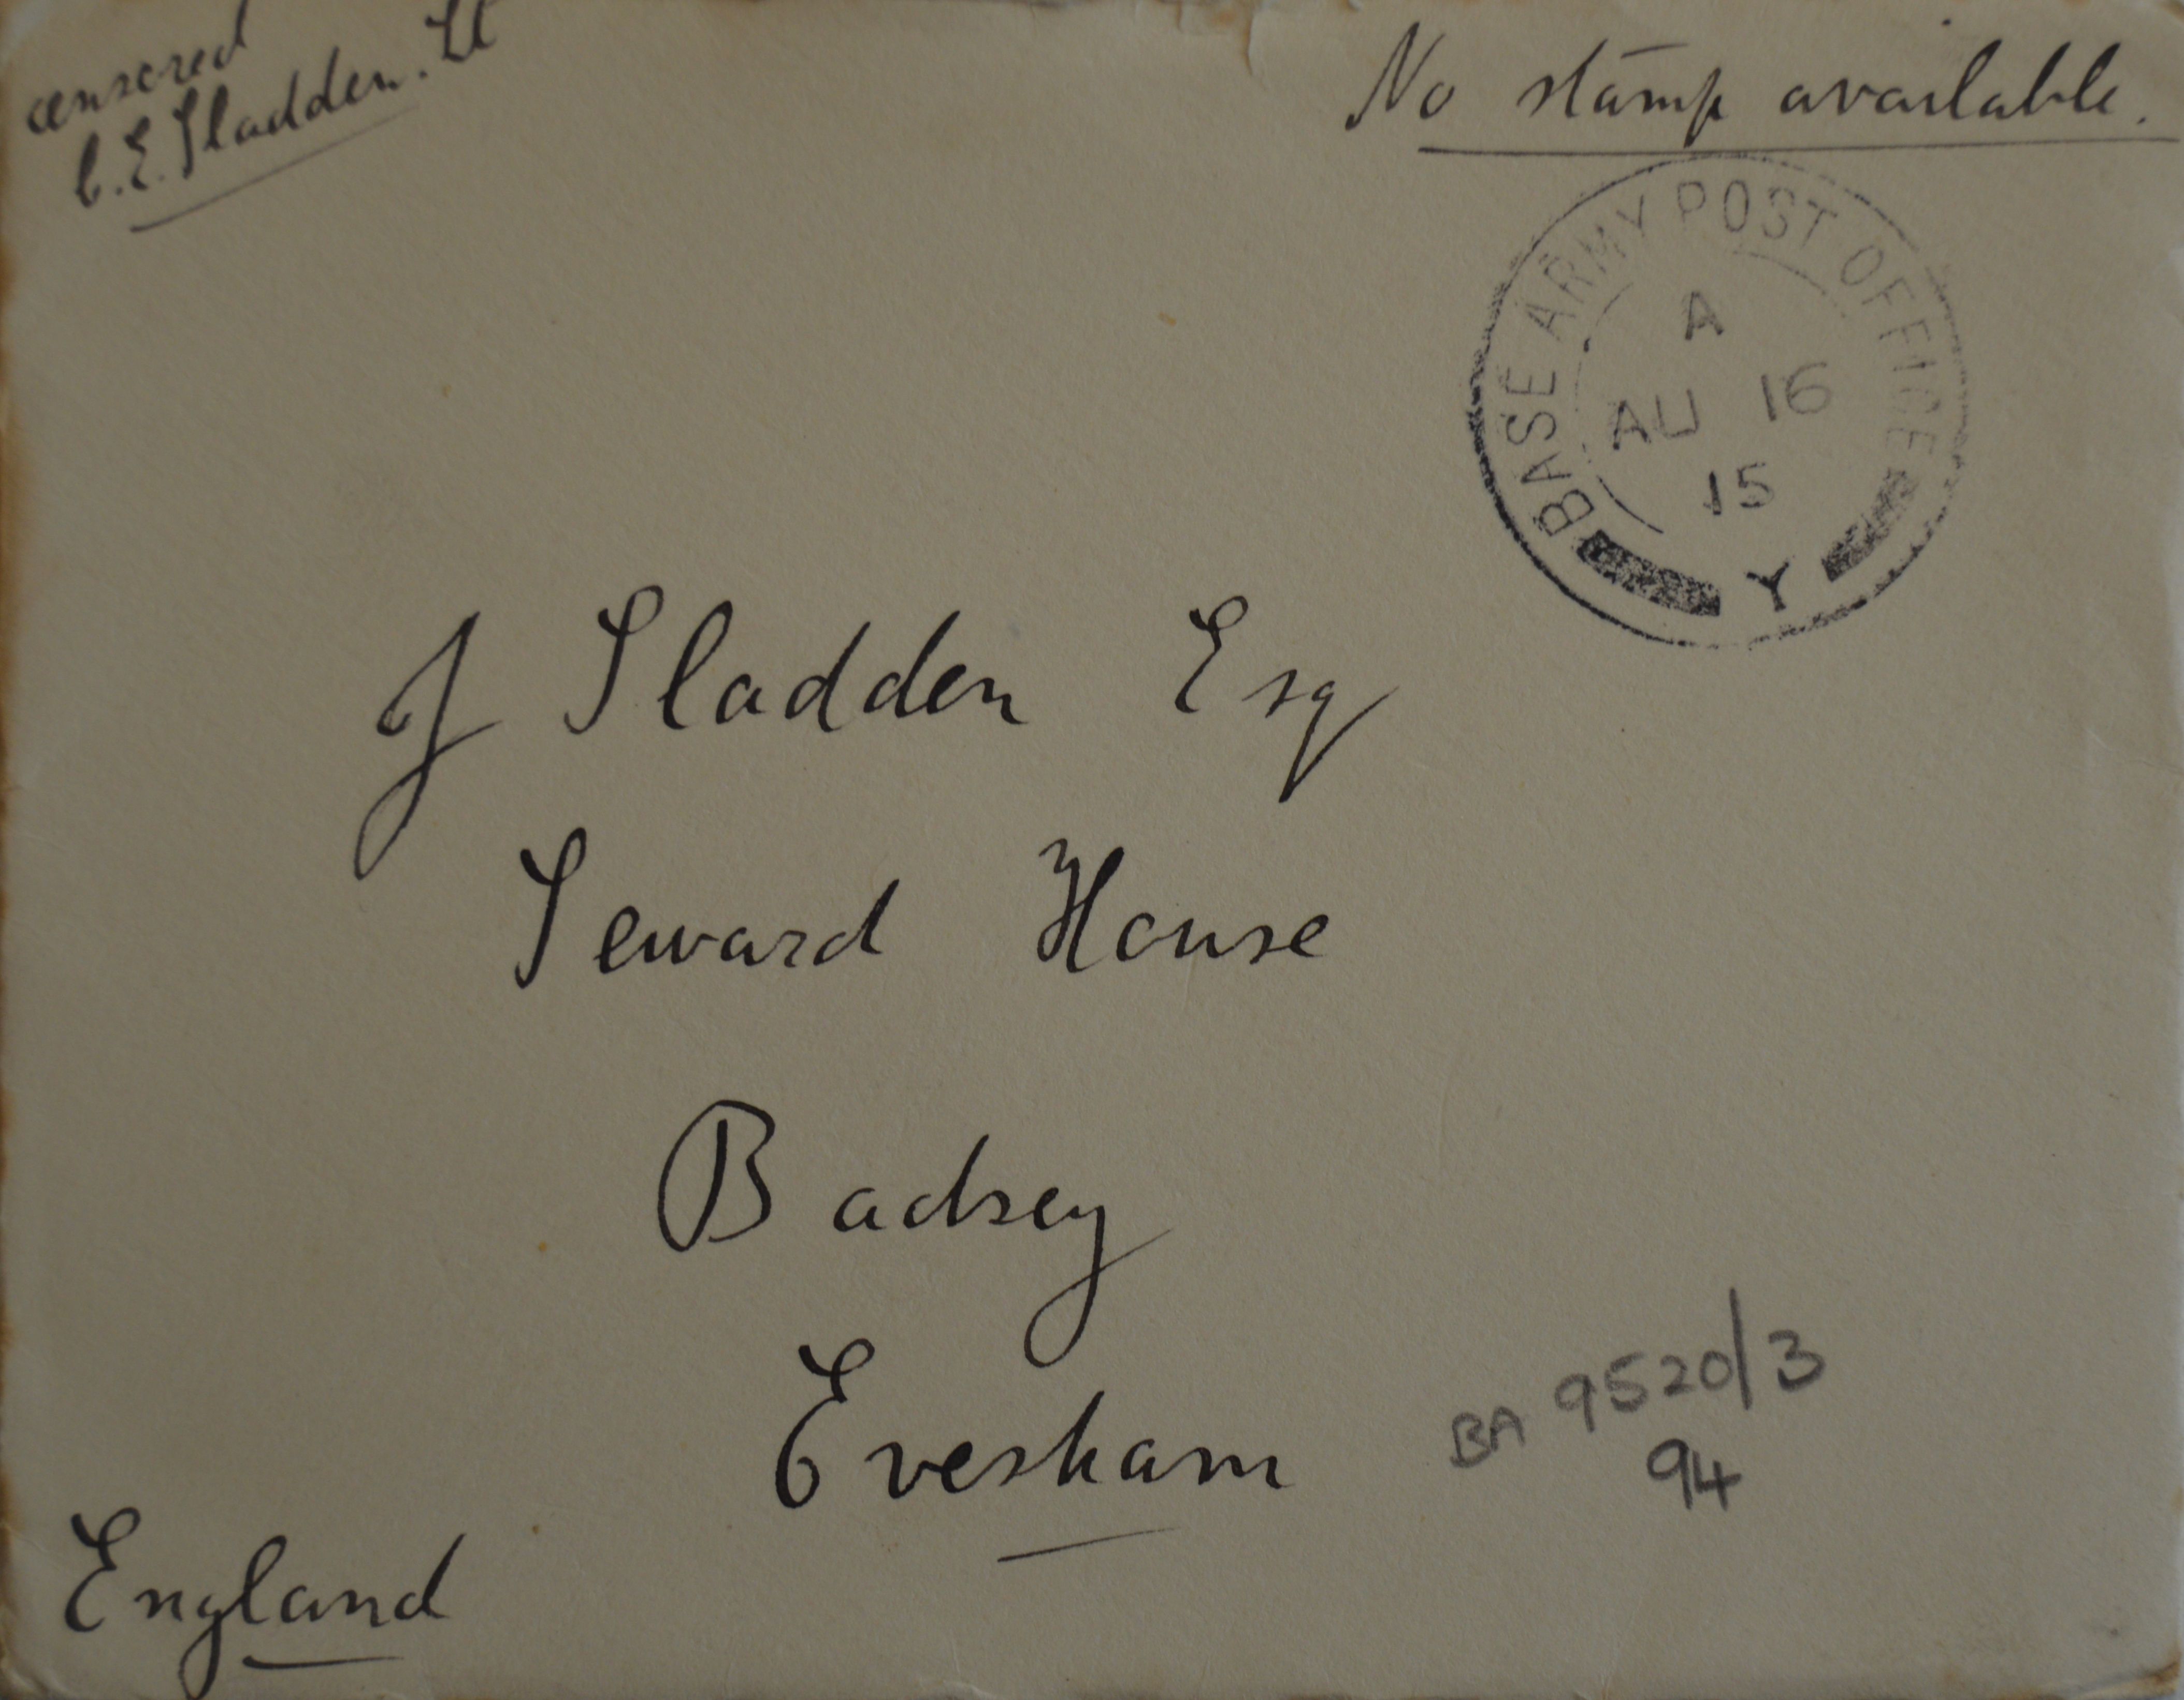 censored
C.E. Sladden. Lt
No stamp available.
BASE ARMY POST OFFICE
A
AU 16
15
Y
J Sladden Esq
Seward House
Badsey
Evesham
BA 9520/3
94
England